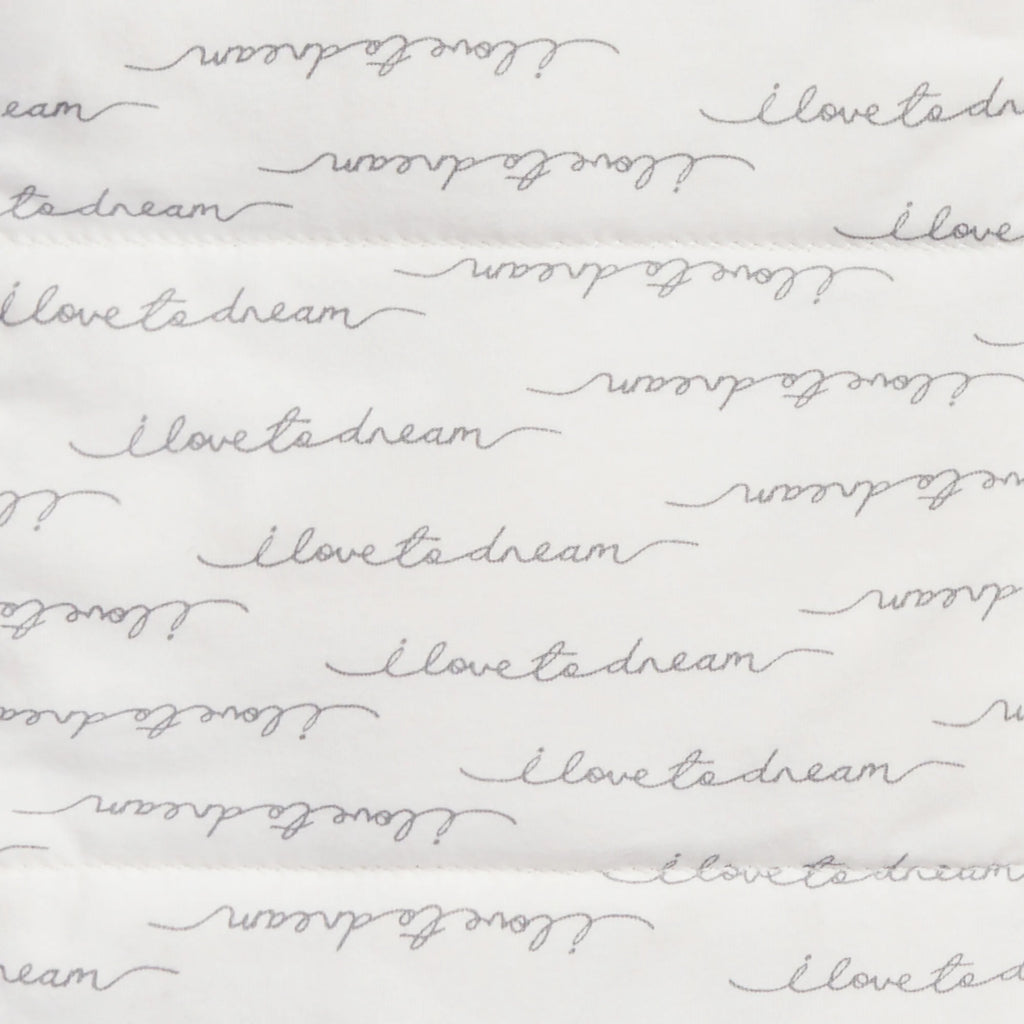 i love to dream
eam i love to dr
i love to dream
to dream i love
i love to dream
i love to dream
i love to dream
i love to dream
ve to dream
il
i love to dream
dream
i love to
i love to dream
m
i love to drea
i love to dream
i love to dream
i love to dream
i love to dream
ream i love to d